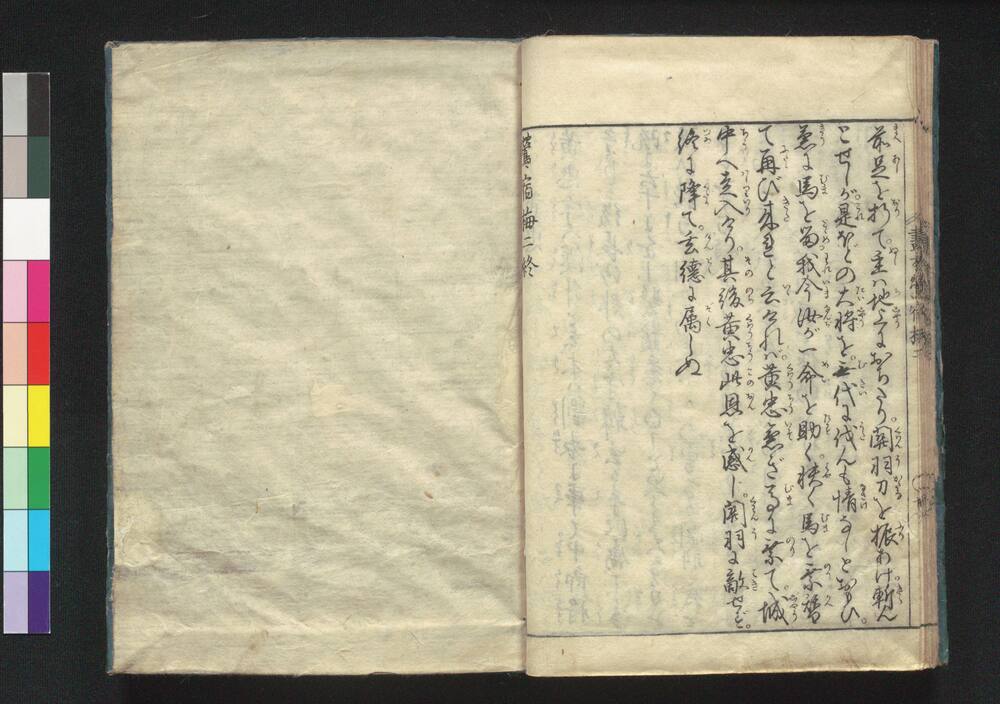 前足を折て主ハ地上におちたり関羽刀を振あけ斬ん
とせしが是ほどの大将を無代に伐んも情なしとおもひ
急に馬を留我今汝が一命を助く快く馬を乗替
て再び来れと云けれハ黄忠急ぎ馬に乗て城
中へ走入けり其後黄忠此恩を感し関羽に敵せず
終に降て玄徳に属しぬ
鶯宿梅二終